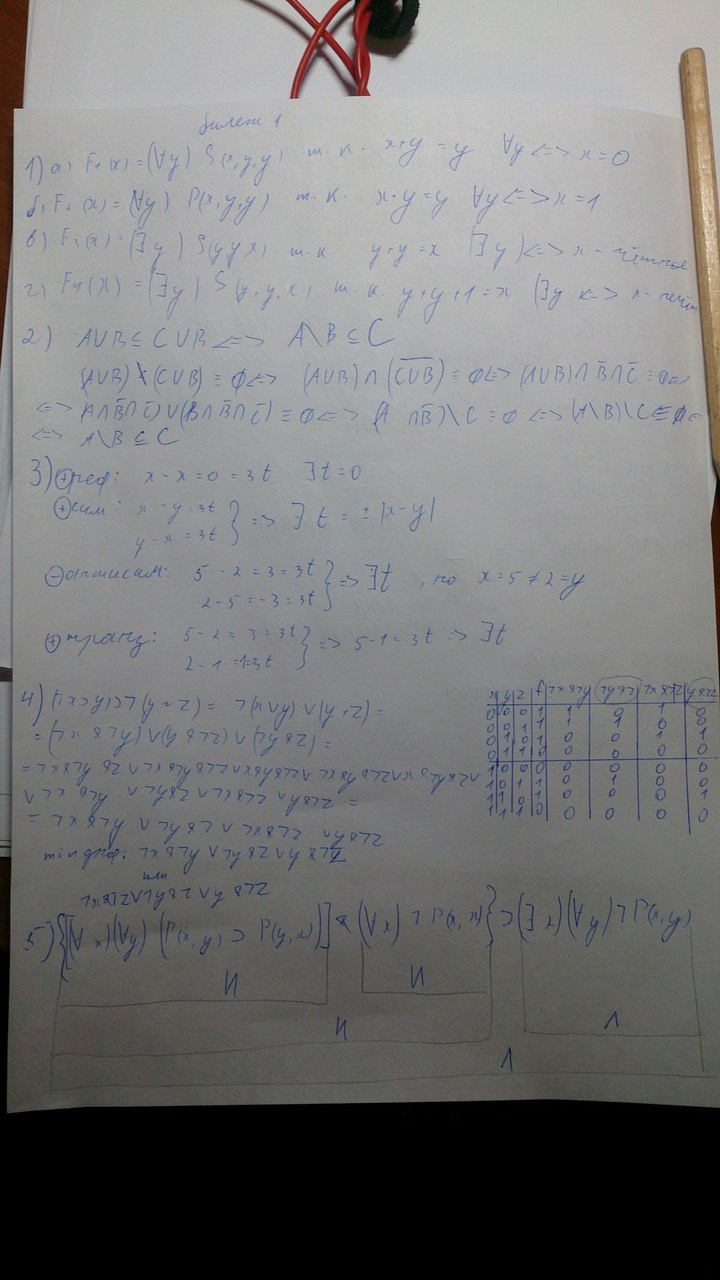 билет 1
1) а) F₁(x) = (∀y) S(x,y,y) т.к. x+y=y ∀y <=> x=0
б) F₂(x) = (∀y) P(x,y,y) т.к. x·y=y ∀y <=> x=1
в) F₃(x) = (∃y) S(y,y,x) т.к y+y=x (∃y) <=> x - чётное
г) F₄(x) = (∃y) S(y,y,x) т.к. y+y+1=x (∃y <=> x - нечёт
2) A∪B⊆C∪B <=> A\B⊆C
(A∪B)\(C∪B) ≡ ∅ <=> (A∪B)∩(C̅∪̅B̅) ≡ ∅ <=> (A∪B)∩B̅∩C̅ ≡ ∅ <=>
<=> (A∩B̅∩C̅)∪(B∩B̅∩C̅) ≡ ∅ <=> (A∩B̅)\C ≡ ∅ <=> (A\B)\C ≡ ∅ <=>
<=> A\B⊆C
3) ⊕реф: x-x=0=3t ∃t=0
⊕сим: x-y=3t
y-x=3t } => ∃ t = ±|x-y|
⊖антисим: 5-2=3=3t
2-5=-3=3t } => ∃t, но x=5≠2=y
⊕транз: 5-2=3=3t
2-1=1=3t } => 5-1=3t => ∃t
4) (¬x⊃y)⊃¬(y~z) = ¬(x∨y)∨(y+z) =
= (¬x&¬y)∨(y&¬z)∨(¬y&z) =
= ¬x&¬y∨¬y&z∨¬x&¬z∨y&¬z
min дnф: ¬x&¬y∨¬y&z∨y&¬z
или
¬x&¬z∨¬y&z∨y&¬z
x y z f ¬x&¬y ¬y&z ¬x&¬z y&¬z
0 0 0 1 1 0 1 0
0 0 1 1 1 1 0 0
0 1 0 1 0 0 1 1
0 1 1 0 0 0 0 0
1 0 0 0 0 0 0 0
1 0 1 1 0 1 0 0
1 1 0 1 0 0 0 1
1 1 1 0 0 0 0 0
5) {[(∀x)(∀y) (P(x,y) ⊃ P(y,x))] & (∀x) ¬P(x,x)} ⊃ (∃x)(∀y) ¬P(x,y)
И И Л
И
Л